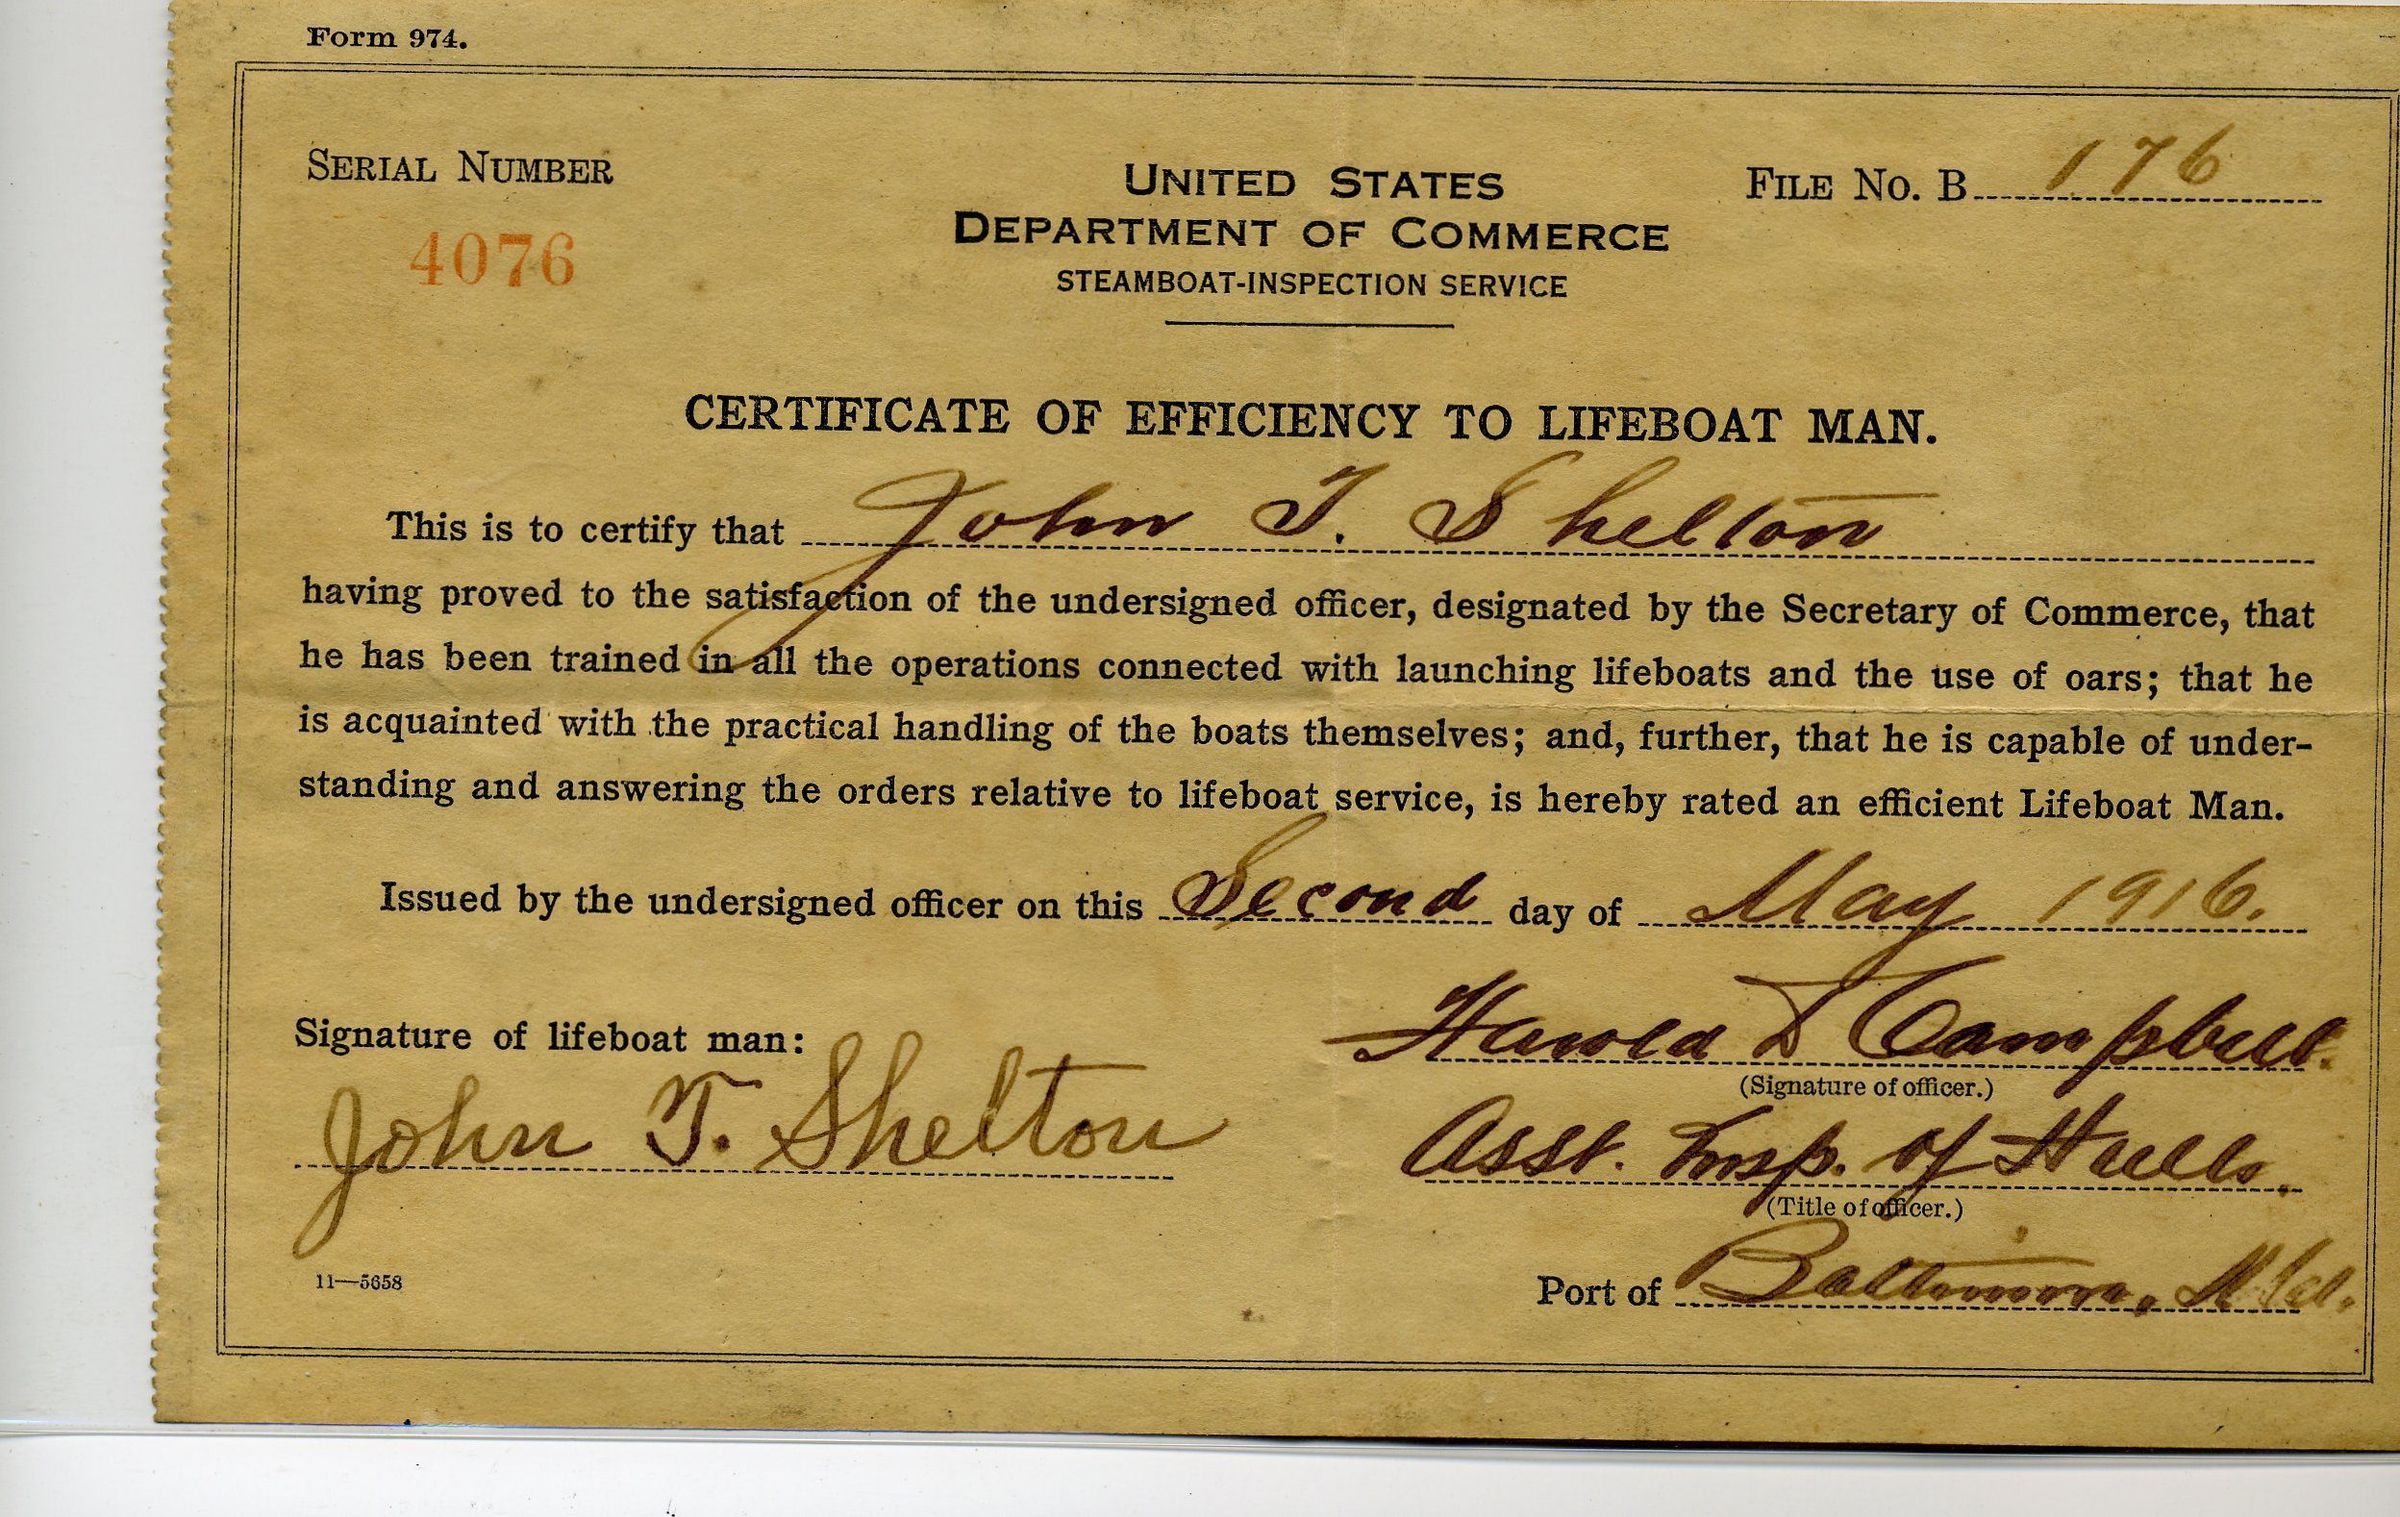 Form 974.
SERIAL NUMBER
4076
UNITED STATES
DEPARTMENT OF COMMERCE
STEAMBOAT-INSPECTION SERVICE
FILE NO. B 176
CERTIFICATE OF EFFICIENCY TO LIFEBOAT MAN.
This is to certify that John T. Shelton
having proved to the satisfaction of the undersigned officer, designated by the Secretary of Commerce, that
he has been trained in all the operations connected with launching lifeboats and the use of oars; that he
is acquainted with the practical handling of the boats themselves; and, further, that he is capable of under-
standing and answering the orders relative to lifeboat service, is hereby rated an efficient Lifeboat Man.
Issued by the undersigned officer on this Second day of May 1916.
Signature of lifeboat man:
John T. Shelton
11—5658
Harold D Campbell.
(Signature of officer.)
Asst. Insp. of Hulls.
(Title of officer.)
Port of Baltimore, Md.